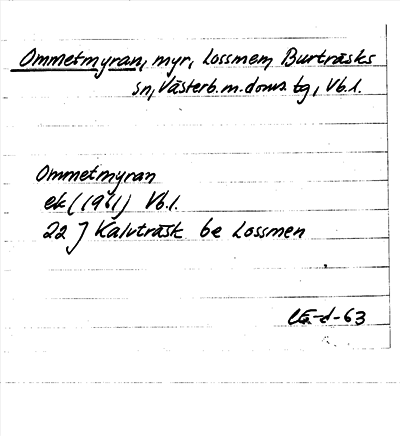 Ommetmyran, myr, Lossmen, Burträsks
sn, Västerb. m. doms. tg, Vb.l.
Ommetmyran
ek (1961) Vb.l.
22 J Kalvträsk be Lossmen
CE-d-63